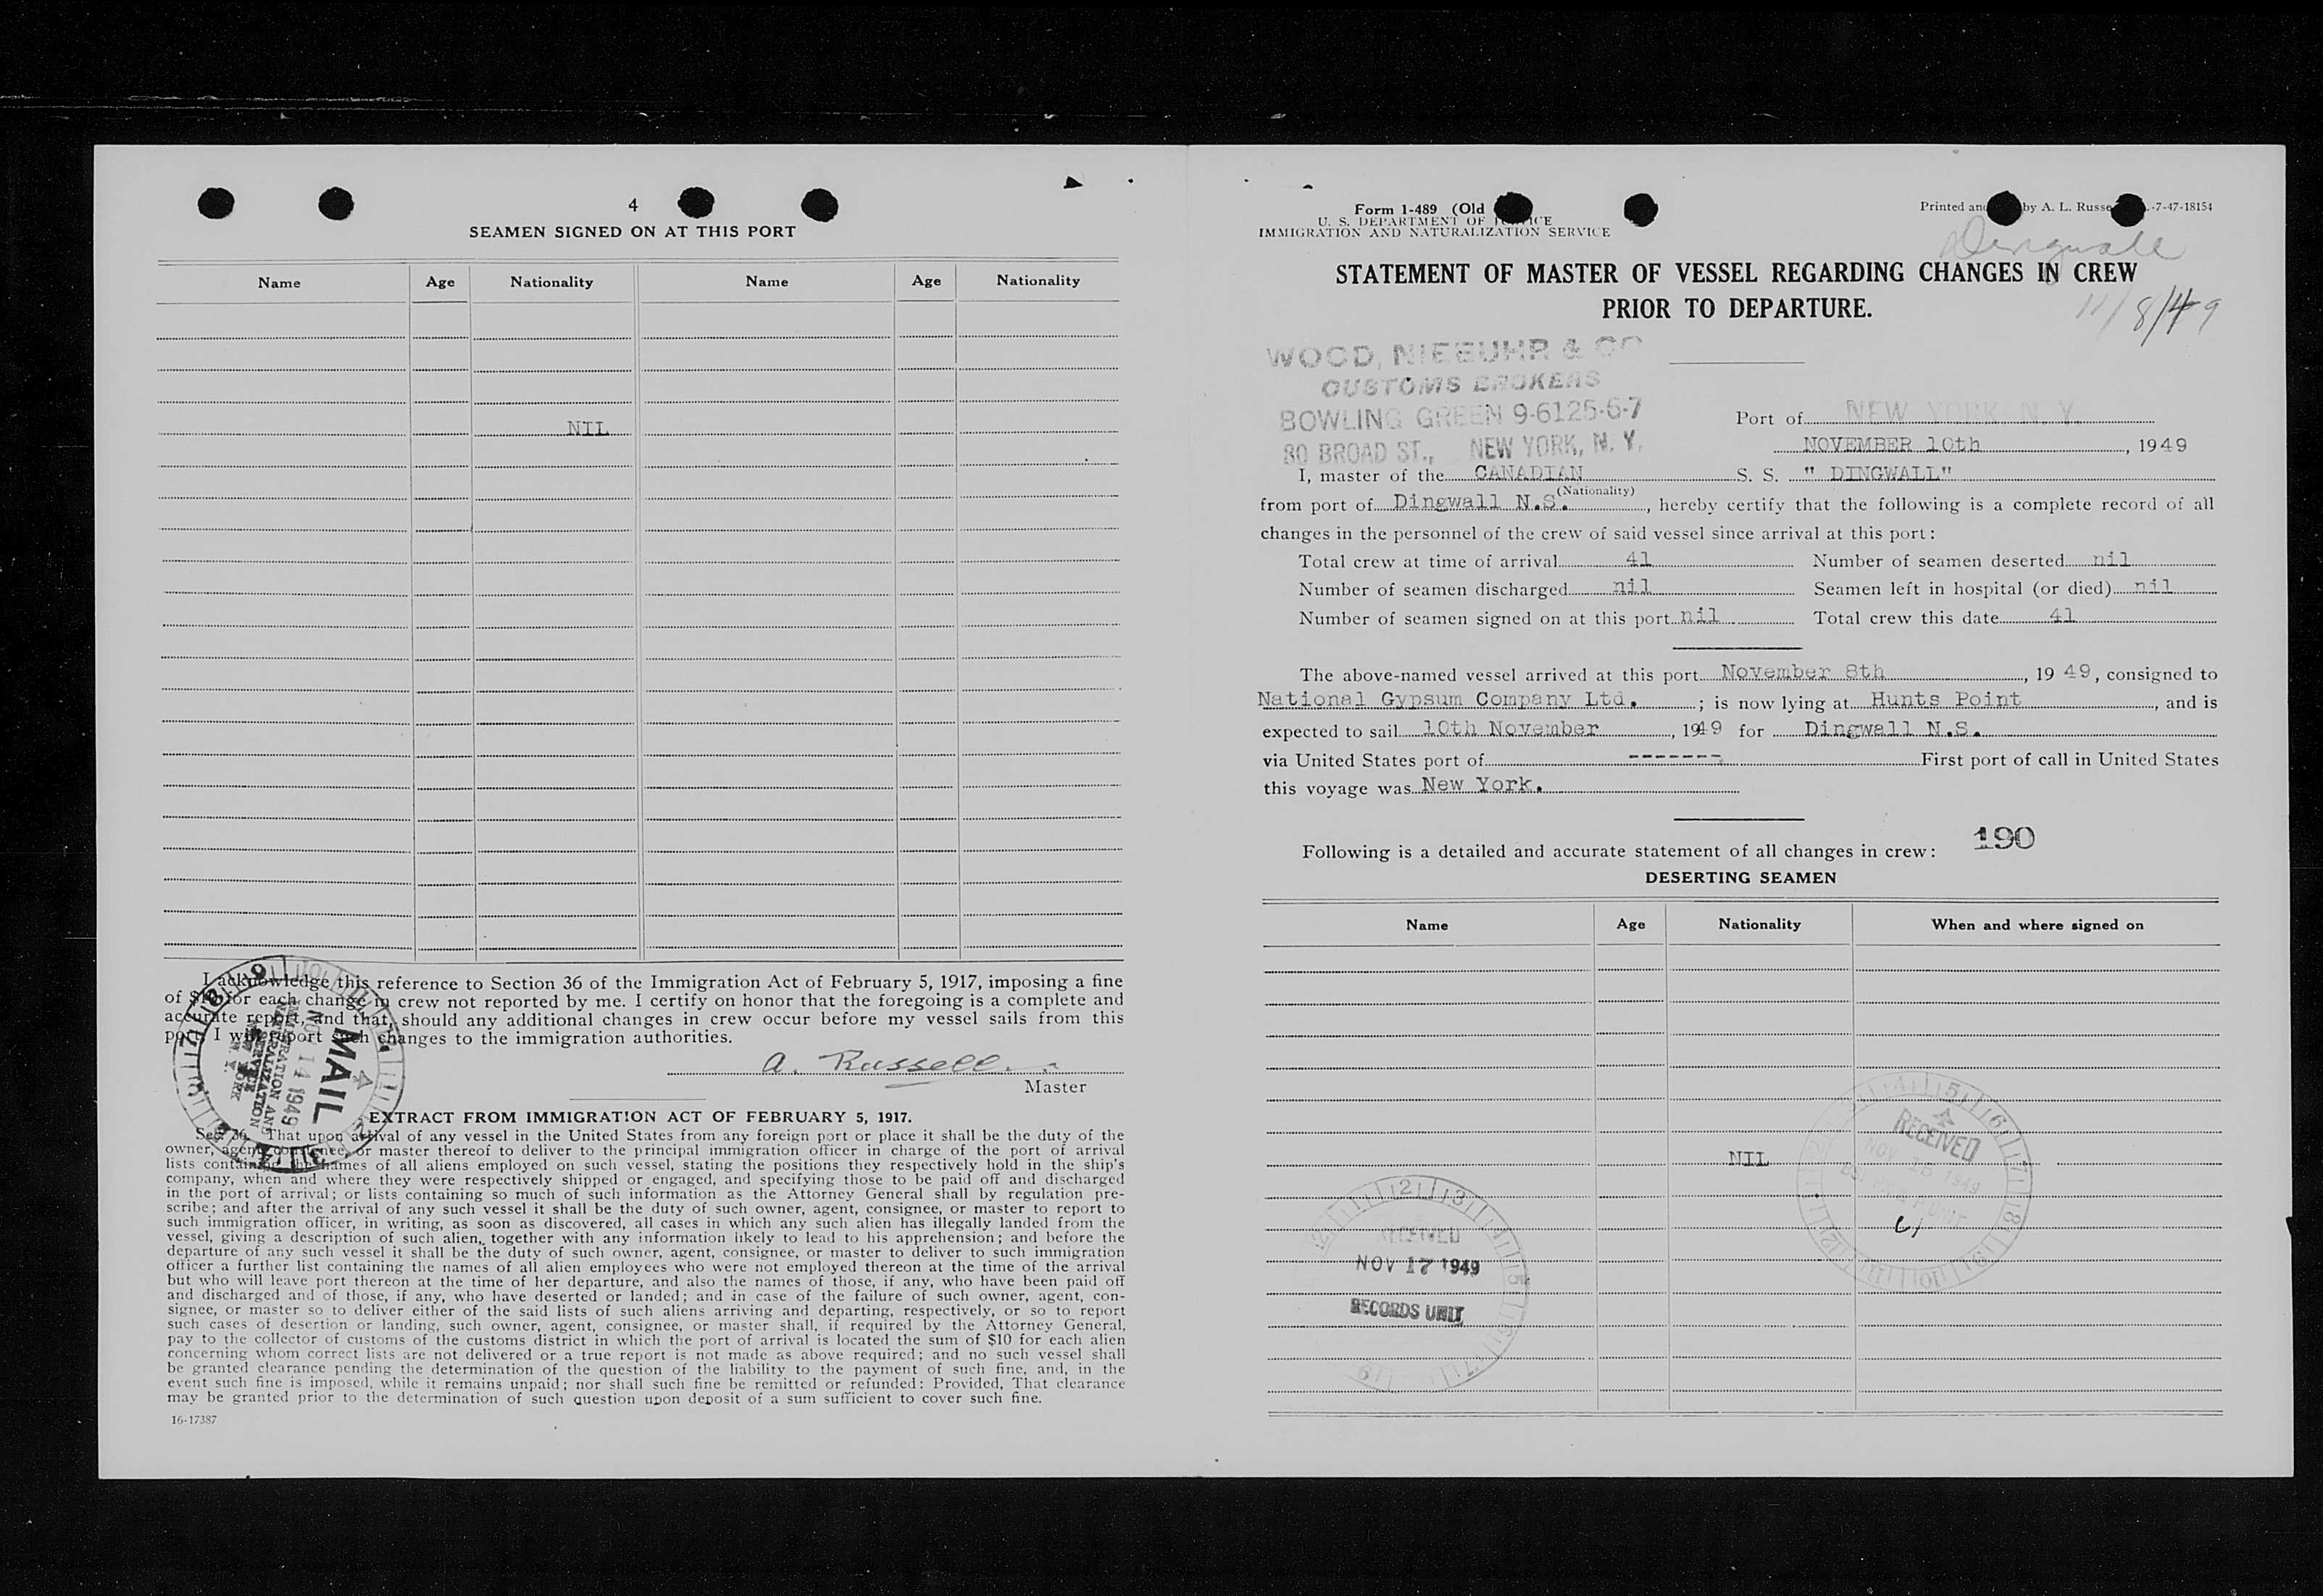 4
SEAMEN SIGNED ON AT THIS PORT
Name Age Nationality Name Age Nationality
NIL
I acknowledge this reference to Section 36 of the Immigration Act of February 5, 1917, imposing a fine
of $10 for each change in crew not reported by me. I certify on honor that the foregoing is a complete and
accurate report, and that, should any additional changes in crew occur before my vessel sails from this
port, I will report such changes to the immigration authorities.
A. Russell.
Master
MAIL
NOV 14 1949
IMMIGRATION AND
NATURALIZATION
SERVICE
NEW YORK
N. Y.
EXTRACT FROM IMMIGRATION ACT OF FEBRUARY 5, 1917.
Sec. 36. That upon arrival of any vessel in the United States from any foreign port or place it shall be the duty of the
owner, agent, consignee, or master thereof to deliver to the principal immigration officer in charge of the port of arrival
lists containing the names of all aliens employed on such vessel, stating the positions they respectively hold in the ship's
company, when and where they were respectively shipped or engaged, and specifying those to be paid off and discharged
in the port of arrival; or lists containing so much of such information as the Attorney General shall by regulation pre-
scribe; and after the arrival of any such vessel it shall be the duty of such owner, agent, consignee, or master to report to
such immigration officer, in writing, as soon as discovered, all cases in which any such alien has illegally landed from the
vessel, giving a description of such alien, together with any information likely to lead to his apprehension; and before the
departure of any such vessel it shall be the duty of such owner, agent, consignee, or master to deliver to such immigration
officer a further list containing the names of all alien employees who were not employed thereon at the time of the arrival
but who will leave port thereon at the time of her departure, and also the names of those, if any, who have been paid off
and discharged and of those, if any, who have deserted or landed; and in case of the failure of such owner, agent, con-
signee, or master so to deliver either of the said lists of such aliens arriving and departing, respectively, or so to report
such cases of desertion or landing, such owner, agent, consignee, or master shall, if required by the Attorney General,
pay to the collector of customs of the customs district in which the port of arrival is located the sum of $10 for each alien
concerning whom correct lists are not delivered or a true report is not made as above required; and no such vessel shall
be granted clearance pending the determination of the question of the liability to the payment of such fine, and, in the
event such fine is imposed, while it remains unpaid; nor shall such fine be remitted or refunded: Provided, That clearance
may be granted prior to the determination of such question upon deposit of a sum sufficient to cover such fine.
16-17387
Form 1-489 (Old
U. S. DEPARTMENT OF JUSTICE
IMMIGRATION AND NATURALIZATION SERVICE
Printed and by A. L. Russe -7-47-18154
Dingwall
STATEMENT OF MASTER OF VESSEL REGARDING CHANGES IN CREW
PRIOR TO DEPARTURE.
11/8/49
WOOD, NIEBUHR & CO
CUSTOMS BROKERS
BOWLING GREEN 9-6125-6-7
80 BROAD ST., NEW YORK, N. Y.
Port of NEW YORK N. Y.
NOVEMBER 10th, 1949
I, master of the CANADIAN S. S. " DINGWALL"
(Nationality)
from port of Dingwall N.S., hereby certify that the following is a complete record of all
changes in the personnel of the crew of said vessel since arrival at this port:
Total crew at time of arrival 41 Number of seamen deserted nil
Number of seamen discharged nil Seamen left in hospital (or died) nil
Number of seamen signed on at this port nil Total crew this date 41
The above-named vessel arrived at this port November 8th, 19 49, consigned to
National Gypsum Company Ltd.; is now lying at Hunts Point, and is
expected to sail 10th November, 1949 for Dingwall N.S.
via United States port of ------- First port of call in United States
this voyage was New York.
190
Following is a detailed and accurate statement of all changes in crew:
DESERTING SEAMEN
Name Age Nationality When and where signed on
NIL
RECEIVED
NOV 15 1949
RECEIVED
NOV 17 1949
RECORDS UNIT